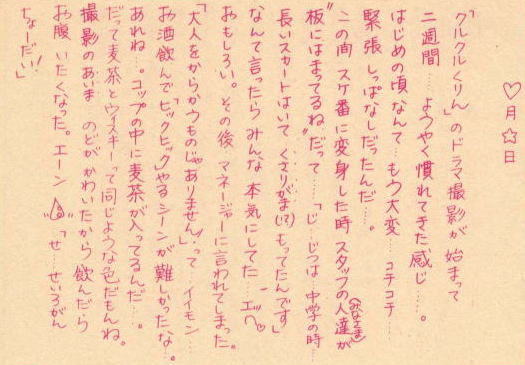 ♡月☆日
「クルクルくりん」のドラマ撮影が始まって
二週間……ようやく慣れてきた感じ……。
はじめの頃なんて…もう大変…コチコチ…
緊張しっぱなしだったんだ……。
この間スケ番に変身した時スタッフの人達(みなさま)が
“板にはまってるね”だって……「じ…じつは…中学の時…
長いスカートはいてくさりがま(じて)もってたんです」
なんて言ったらみんな本気にしてた…エヘ♡
おもしろい。その後マネージャーに言われてしまった。
「大人をからかうものじゃありません」って…イイモン…
お酒飲んでヒックヒックやるシーンが難しかったな…。
あれね…。コップの中に麦茶が入ってるんだ…。
だって麦茶とウイスキーって同じような色だもんね。
撮影のあいま のどがかわいたから飲んだら
お腹 いたくなった。エーン “せ…せいろがん
ちょーだい!”